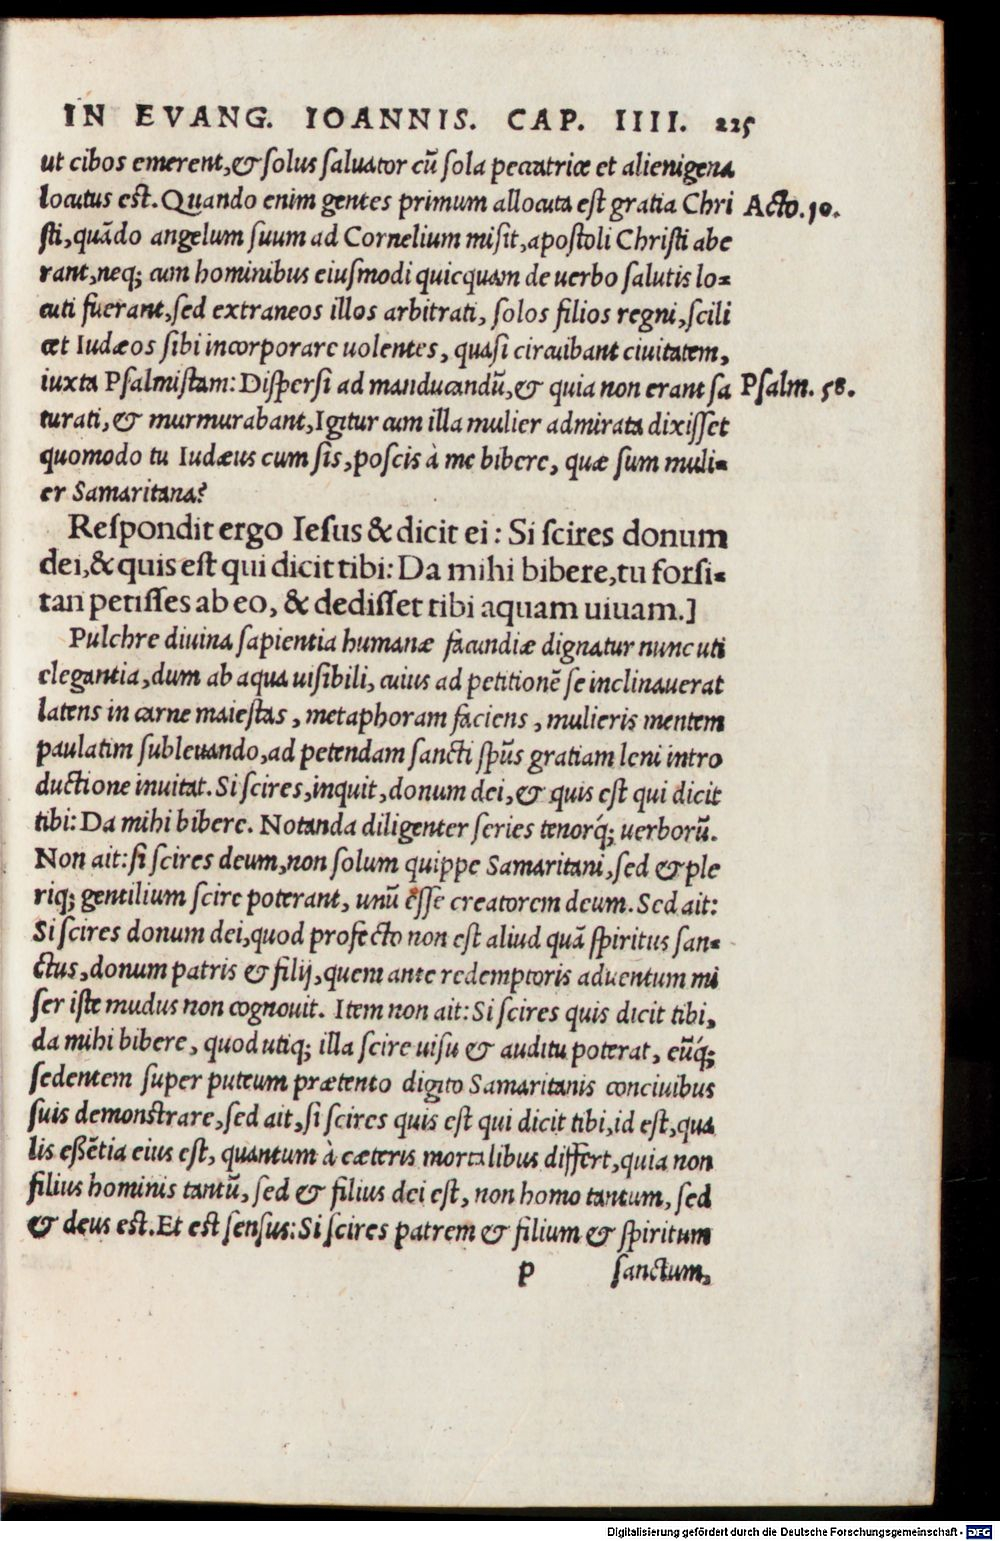 IN EVANG. IOANNIS. CAP. IIII. 225
ut cibos emerent,& ſolus ſaluator cũ ſola peccatrice et alienigena
locutus est. Quando enim gentes primum allocuta eſt gratia Chri Acto.10.
ſti,quãdo angelum ſuum ad Cornelium miſit,apoſtoli Chriſti abe
rant,neq; cum hominibus eiuſmodi quicquam de uerbo ſalutis lo=
cuti fuerant,ſed extraneos illos arbitrati, ſolos filios regni,ſcili
cet Iudæos ſibi incorporare uolentes, quaſi circuibant ciuitatem,
iuxta Pſalmiſtam: Diſperſi ad manducandũ,& quia non erant ſa Pſalm. 58.
turati,& murmurabant,Igitur cum illa mulier admirata dixiſſet
quomodo tu Iudæus cum ſis,poſcis à me bibere, quæ ſum muli=
er Samaritana?
Reſpondit ergo Ieſus & dicit ei: Si ſcires donum
dei,& quis eſt qui dicit tibi: Da mihi bibere,tu forſi=
tan petiſſes ab eo, & dediſſet tibi aquam uiuam.]
Pulchre diuina ſapientia humanæ facundiæ dignatur nunc uti
elegantia,dum ab aqua uiſibili, cuius ad petitionẽ ſe inclinauerat
latens in carne maieſtas, metaphoram faciens, mulieris mentem
paulatim ſubleuando,ad petendam ſancti ſpũs gratiam leni intro
ductione inuitat. Si ſcires,inquit,donum dei,& quis eſt qui dicit
tibi: Da mihi bibere. Notanda diligenter ſeries tenorq́; uerborũ.
Non ait: ſi ſcires deum,non ſolum quippe Samaritani,ſed & ple
riq; gentilium ſcire poterant, unũ eſſe creatorem deum. Sed ait:
Si ſcires donum dei,quod profecto non eſt aliud quã ſpiritus ſan=
ctus,donum patris & filij,quem ante redemptoris aduentum mi
ſer iſte mudus non cognouit. Item non ait: Si ſcires quis dicit tibi,
da mihi bibere, quod utiq; illa ſcire uiſu & auditu poterat, eũq́;
ſedentem ſuper puteum prætento digito Samaritanis conciuibus
ſuis demonſtrare,ſed ait,ſi ſcires quis eſt qui dicit tibi,id eſt,qua
lis eßẽtia eius eſt, quantum à cæteris mortalibus differt,quia non
filius hominis tantũ, ſed & filius dei eſt, non homo tantum, ſed
& deus eſt. Et eſt ſenſus: Si ſcires patrem & filium & ſpiritum
p ſanctum,
Digitalisierung gefördert durch die Deutsche Forschungsgemeinschaft - DFG